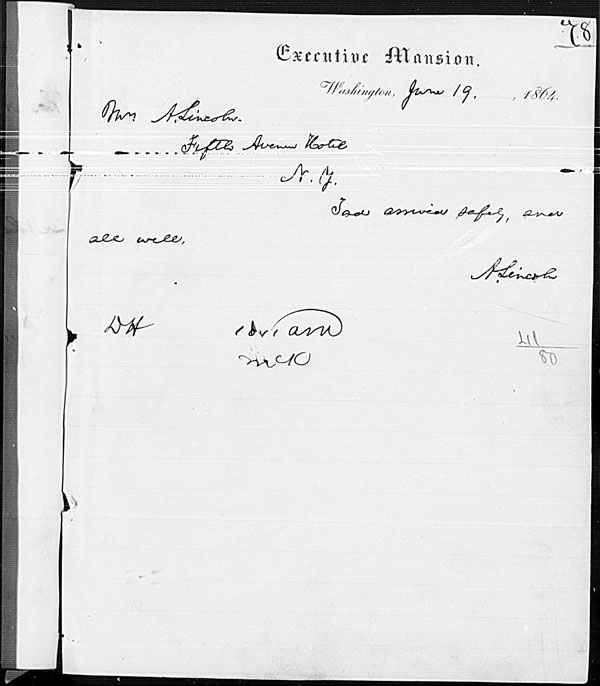 78
Executive Mansion.
Washington, June 19. , 1864.
Mrs A. Lincoln.
Fifth Avenue Hotel
N. Y.
Tad arrived safely, and
all well.
A. Lincoln
DH
McK
411
80